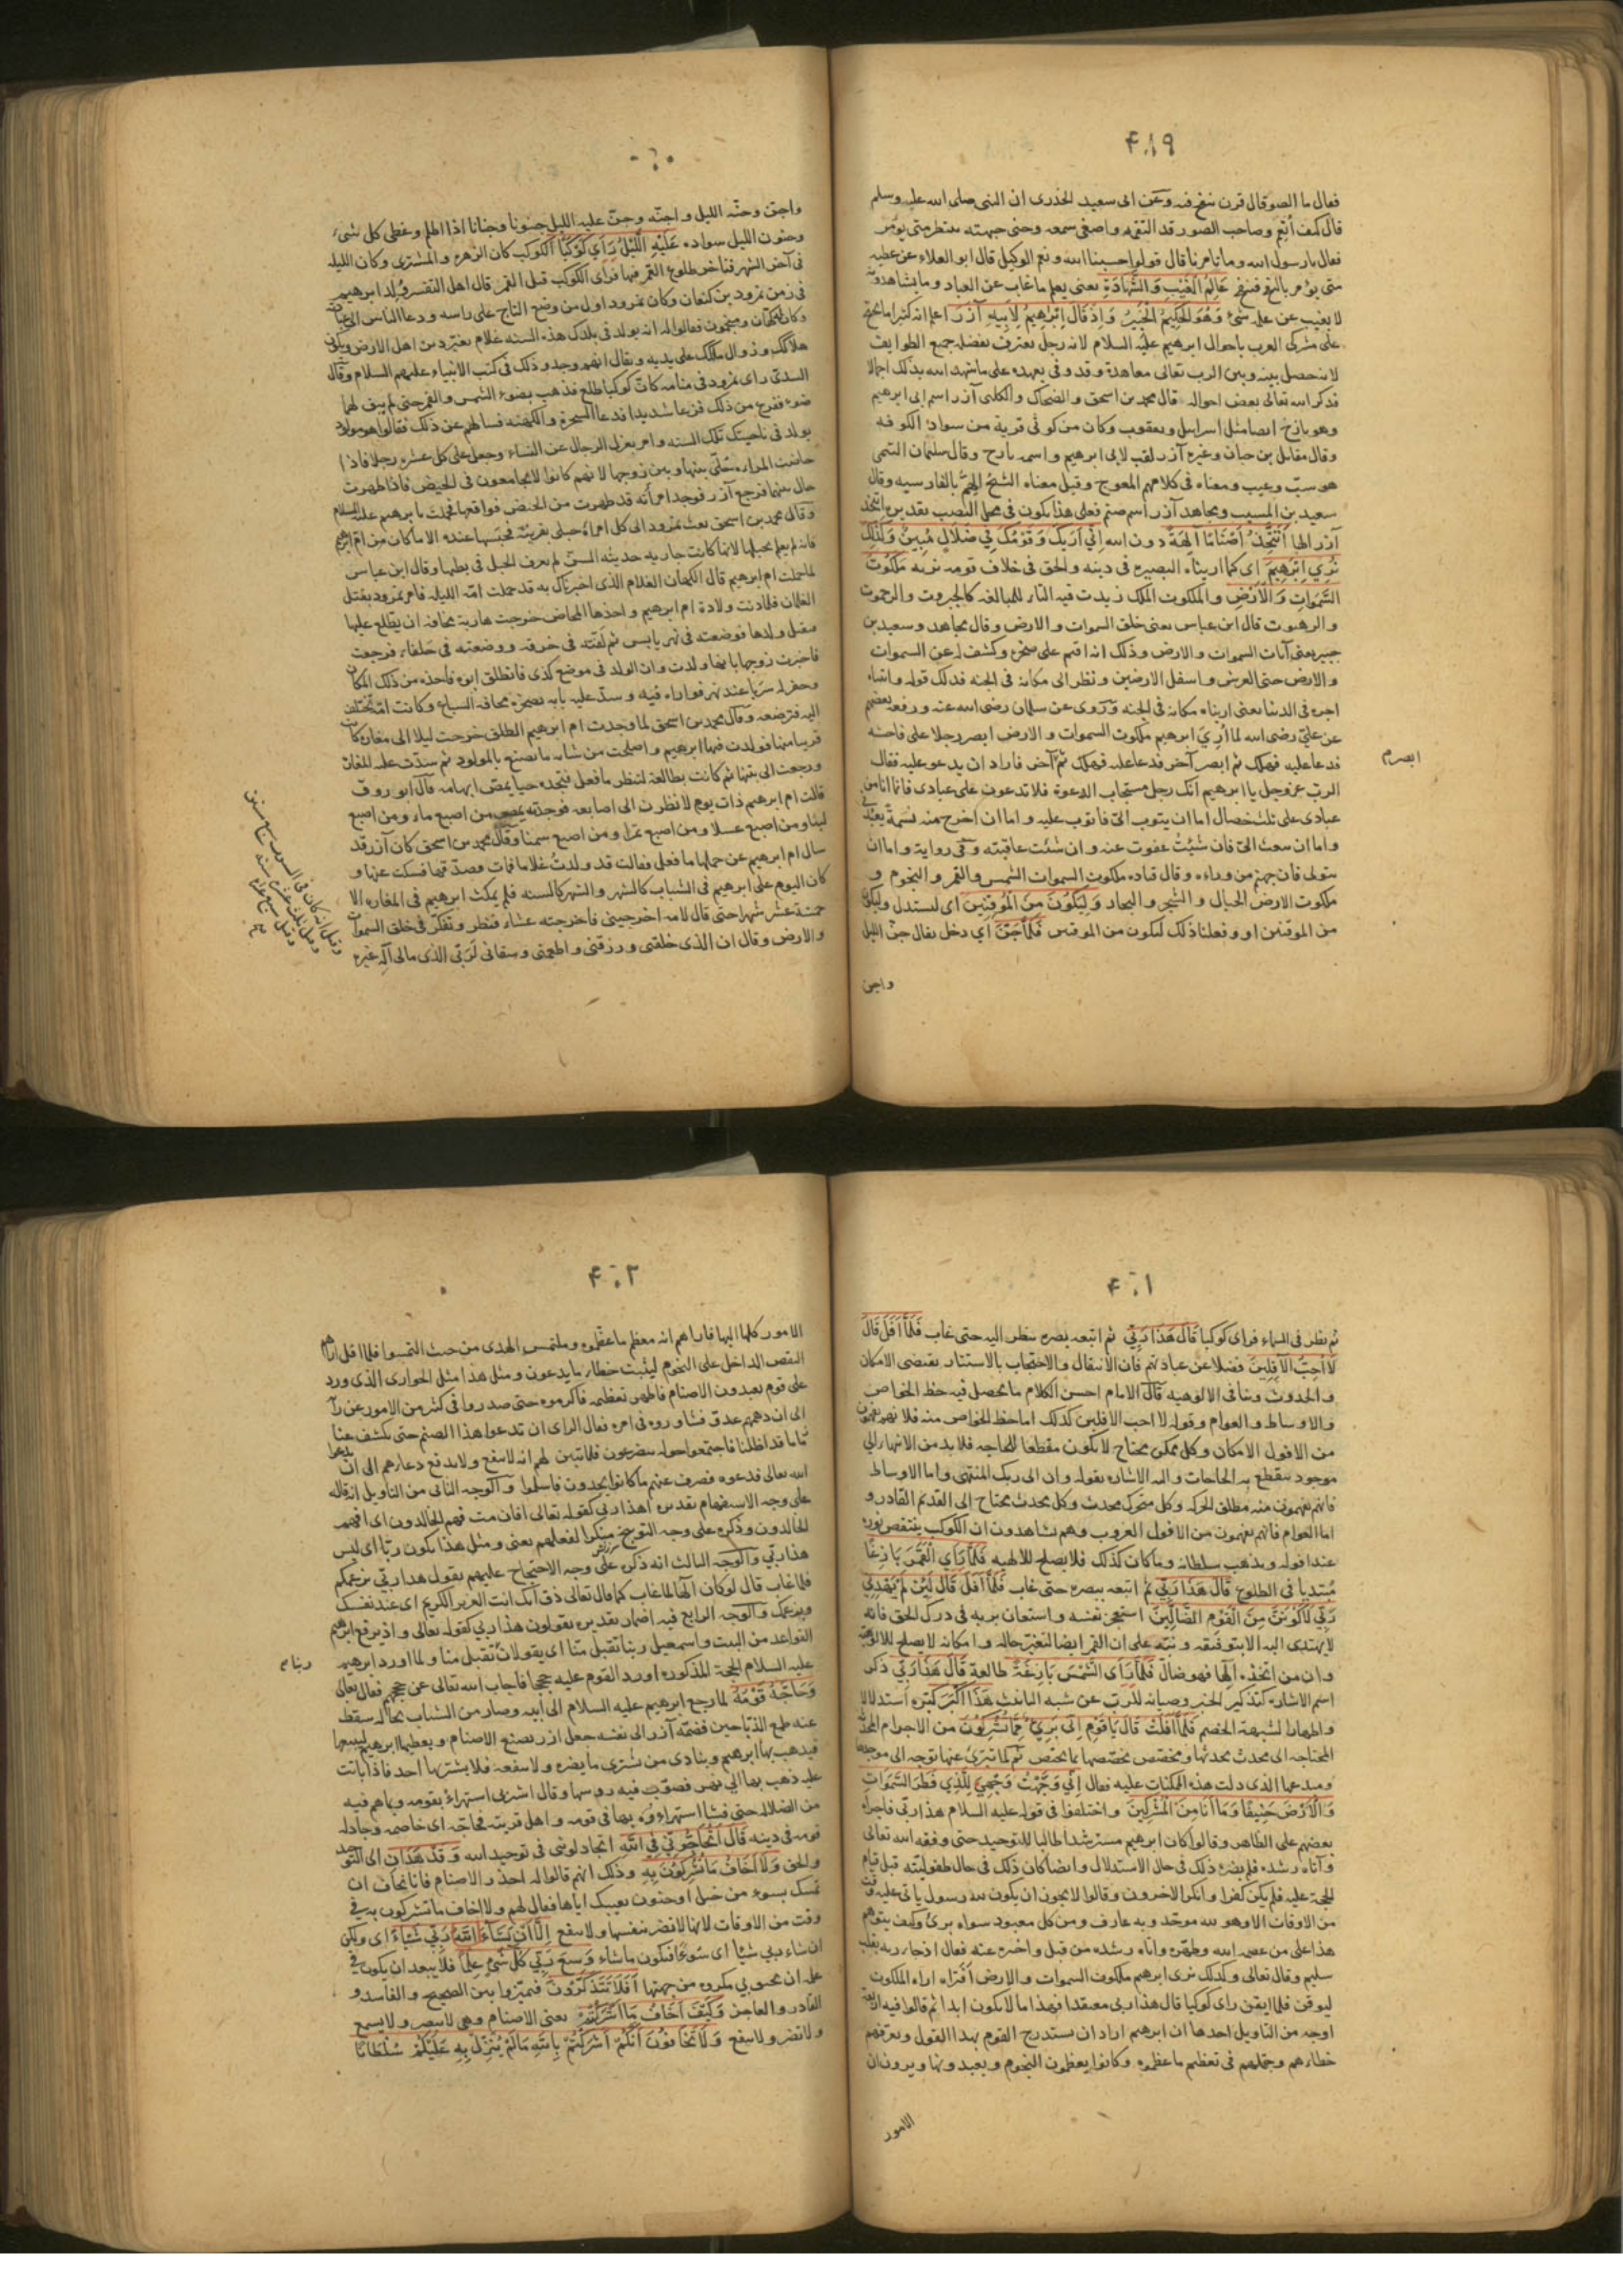 ٤١٩
فقال ما الصور قال قرن ينفخ فيه وعن ابى سعيد الخدرى ان النبى صلى الله عليه وسلم
قال كيف أنعم وصاحب الصور قد التقمه واصغى سمعه وحنى جبهته ينتظر متى يؤمر
فقال يا رسول الله وما تامرنا قال قولوا حسبنا الله ونعم الوكيل قال ابو العلاء عن عطيه
متى يؤمر بالنفخ فينفخ عَالِمُ الْغَيْبِ وَالشَّهَادَةِ يعنى يعلم ما غاب عن العباد وما يشاهدونه
لا يغيب عن علمه شئ وَهُوَ الْحَكِيمُ الْخَبِيرُ وَاِذْ قَالَ اِبْرٰهِيمُ لِاَبِيهِ آزَرَ اعلم انه كثيرا ما يحتج
على مشركى العرب باحوال ابرهيم عليه السلام لانه رجل يعترف بفضله جميع الطوايف
لانه حصل بينه وبين الرب تعالى معاهدة وقد وفى بعهده على ما شهد الله بذلك اجمالا
فذكر الله تعالى بعض احواله قال محمد بن اسحق والضحاك والكلبى آزر اسم ابى ابرهيم
وهو تارخ ايضا مثل اسرايل ويعقوب وكان من كوثى قرية من سواد الكوفه
وقال مقاتل بن حيان وغيره آزر لقب لابى ابرهيم واسمه تارح وقال سليمان التيمى
هو سبّ وعيب ومعناه فى كلامهم المعوج وقيل معناه الشيخ الهمّ بالفارسيه وقال
سعيد بن المسيب ومجاهد آزر اسم صنم فعلى هذا يكون فى محل النصب تقديره اتتخذ
آزر الها أَتَتَّخِذُ اَصْنَامًا آلِهَةً دون الله اِنِّي اَرٰيكَ وَقَوْمَكَ فِي ضَلَالٍ مُبِينٍ وَكَذٰلِكَ
نُرِي اِبْرٰهِيمَ اى كما اريناه البصيره فى دينه والحق فى خلاف قومه نريه مَلَكُوتَ
السَّمٰوَاتِ وَالْاَرْضِ والملكوت الملك زيدت فيه التاء للمبالغه كالجبروت والرحموت
والرهبوت قال ابن عباس يعنى خلق السموات والارض وقال مجاهد وسعيد بن
جبير يعنى آيات السموات والارض وذلك انه اقيم على صخره وكشف له عن السموات
والارض حتى العرش واسفل الارضين ونظر الى مكانه فى الجنه فذلك قوله واتيناه
اجره فى الدنيا يعنى اريناه مكانه فى الجنه وروى عن سلمان رضى الله عنه ورفعه بعضهم
عن على رضى الله لما أُرِيَ ابرهيم ملكوت السموات والارض ابصر رجلا على فاحشه
فدعا عليه فهلك ثم ابصر آخر فدعا عليه فهلك ثم آخر فاراد ان يدعو عليه فقال
الرب عز وجل يا ابرهيم انك رجل مستجاب الدعوة فلا تدعون على عبادى فانما انا من
عبادى على ثلث خصال اما ان يتوب الىّ فاتوب عليه واما ان اخرج منه نسمة تعبدنى
واما ان يبعث الىّ فان شئتُ عفوت عنه وان شئت عاقبته وفى رواية واما ان
يتولى فان جهنم من وراءه وقال قتاده ملكوت السموات الشمس والقمر والنجوم و
ملكوت الارض الجبال والشجر والبحار وَلِيَكُونَ مِنَ الْمُوقِنِينَ اى ليستدل وليكون
من الموقنين او وفعلنا ذلك ليكون من الموقنين فَلَمَّا جَنَّ اى دخل يقال جنّ الليل
واجن
ابصر م
واجنّ وجنّه الليل واجنّه وجنّ عليه الليل جنونا وجنانا اذا اظلم وغطى كل شىء
وجنون الليل سواده عَلَيْهِ اللَّيْلُ رَاٰى كَوْكَبًا الكوكب كان الزهره والمشترى وكان الليله
فى آخر الشهر فتاخر طلوع القمر فيها فراى الكوكب قبل القمر قال اهل التفسير وُلد ابرهيم
فى زمن نمرود بن كنعان وكان نمرود اول من وضع التاج على راسه ودعا الناس الى عبادته
وكان له كهان ومنجمون فقالوا له انه يولد فى بلدك هذه السنه غلام يغيّر دين اهل الارض ويكون
هلاكك وزوال ملكك على يديه ويقال انهم وجدوا ذلك فى كتب الانبياء عليهم السلام وقال
السدىّ راى نمرود فى منامه كانّ كوكبا طلع فذهب بضوء الشمس والقمر حتى لم يبق لهما
ضوء ففزع من ذلك فزعا شديدا فدعا السحرة والكهنه فسالهم عن ذلك فقالوا هو مولود
يولد فى ناحيتك تلك السنه وامر بعزل الرجال عن النساء وجعل على كل عشره رجلا فاذا
حاضت المراه خلّى بينها وبين زوجها لانهم كانوا لا يجامعون فى الحيض فاذا طهرت
حال بينهما فرجع آزر فوجد امرأته قد طهرت من الحيض فواقعها فحملت بابرهيم عليه السلام
وقال محمد بن اسحق بعث نمرود الى كل امرأة حبلى بقريته فحبسها عنده الا ما كان من ام ابرهيم
فانه لم يعلم بحبلها لانها كانت جاريه حديثه السنّ لم يعرف الحبل فى بطنها وقال ابن عباس
لما حملت ام ابرهيم قال الكهان الغلام الذى اخبرناك به قد حملت امّه الليله فامر نمرود بقتل
الغلمان فلما دنت ولادة ام ابرهيم واخذها المخاض خرجت هاربة مخافة ان يطلع عليها
فيقتل ولدها فوضعته فى نهر يابس ثم لفّته فى خرقه ووضعته فى حلفاء فرجعت
فاخبرت زوجها بانها ولدت وان الولد فى موضع كذى فانطلق ابوه فاخذه من ذلك المكان
وحفر له سربا عند نهر فواراه فيه وسدّ عليه بابه بصخره مخافه السباع وكانت امّه تختلف
اليه فترضعه وقال محمد بن اسحق لما وجدت ام ابرهيم الطلق خرجت ليلا الى مغاره كانت
قريبا منها فولدت فيها ابرهيم واصلحت من شانه ما يصنع بالمولود ثم سدّت عليه المغاره
ورجعت الى بيتها ثم كانت تطالعه لتنظر ما فعل فتجده حيا يمصّ ابهامه قال ابو روق
قالت ام ابرهيم ذات يوم لانظرن الى اصابعه فوجدته يمص من اصبع ماء ومن اصبع
لبنا ومن اصبع عسلا ومن اصبع تمرا ومن اصبع سمنا وقال محمد بن اسحق كان آزر قد
سال ام ابرهيم عن حملها ما فعل فقالت قد ولدتُ غلاما فمات فصدّقها فسكت عنها و
كان اليوم على ابرهيم فى الشباب كالشهر والشهر كالسنه فلم يمكث ابرهيم فى المغاره الا
خمسة عشر شهرا حتى قال لامه اخرجينى فاخرجته عشاء فنظر وتفكّر فى خلق السموات
والارض وقال ان الذى خلقنى ورزقنى واطعمنى وسقانى لَرَبّى الذى مالى آله غيره
وقيل انه كان فى السرب سبع سنين
وقيل ثلث عشره سنة
وقيل سبع عشرة
٤٠١
ثم نظر فى السماء فراى كوكبا قَالَ هٰذَا رَبِّي ثم اتبعه بصره ينظر اليه حتى غاب فَلَمَّا اَفَلَ قَالَ
لَا اُحِبُّ الْآفِلِينَ فضلا عن عبادتهم فان الانتقال والاحتجاب بالاستتار يقتضى الامكان
والحدوث وينافى الالوهيه قال الامام احسن الكلام ما يحصل فيه حظ الخواص
والاوساط والعوام وقوله لا احب الافلين كذلك اما حظ الخواص منه فلانهم يفهمون
من الافول الامكان وكل ممكن محتاج لا يكون مقطعا للحاجه فلا بد من الانتهاء الى
موجود ينقطع به الحاجات واليه الاشاره بقوله وان الى ربك المنتهى واما الاوساط
فانهم يفهمون منه مطلق الحركه وكل متحرك محدث وكل محدث محتاج الى القديم القادر و
اما العوام فانهم يفهمون من الافول الغروب وهم يشاهدون ان الكوكب ينتقص نوره
عند افوله ويذهب سلطانه وما كان كذلك فلا يصلح للالهيه فَلَمَّا رَاَى الْقَمَرَ بَازِغًا
مُبتديا فى الطلوع قَالَ هٰذَا رَبِّي ثم اتبعه ببصره حتى غاب فَلَمَّا اَفَلَ قَالَ لَئِنْ لَمْ يَهْدِنِي
رَبِّي لَاَكُونَنَّ مِنَ الْقَوْمِ الضَّالِّينَ استعجز نفسه واستعان بربه فى درك الحق فانه
لا يهتدى اليه الا بتوفيقه ونبّه على ان القمر ايضا لتغير حاله وامكانه لا يصلح للالوهية
وان من اتخذه الها فهو ضال فَلَمَّا رَاَى الشَّمْسَ بَازِغَةً طالعة قَالَ هٰذَا رَبِّي ذكر
اسم الاشاره لتذكير الخبر وصيانه للرب عن شبه التانيث هٰذَا اَكْبَرُ كبّره استدلالا
واظهارا لشبهة الخصم فَلَمَّا اَفَلَتْ قَالَ يَا قَوْمِ اِنِّي بَرِيءٌ مِمَّا تُشْرِكُونَ من الاجرام المحدثة
المحتاجه الى محدث يحدثها ومخصّص يخصّصها بما يختص ثم لما تبرّئ عنها توجه الى موجدها
ومبدعها الذى دلت هذه الممكنات عليه فقال اِنِّي وَجَّهْتُ وَجْهِيَ لِلَّذِي فَطَرَ السَّمٰوَاتِ
وَالْاَرْضَ حَنِيفًا وَمَا اَنَا مِنَ الْمُشْرِكِينَ واختلفوا فى قوله عليه السلام هذا ربى فاجراه
بعضهم على الظاهر وقالوا كان ابرهيم مسترشدا طالبا للتوحيد حتى وفقه الله تعالى
وآتاه رشده فلم يضره ذلك فى حال الاستدلال وايضا كان ذلك فى حال طفوليته قبل قيام
الحجة عليه فلم يكن كفرا وانكر الاخرون وقالوا لا يجوز ان يكون لله رسول ياتى عليه وقت
من الاوقات الا وهو لله موحّد وبه عارف ومن كل معبود سواه برئ وكيف يتوهم
هذا على من عصمه الله وطهّره واتاه رشده من قبل واخبر عنه فقال اذ جاء ربه بقلب
سليم وقال تعالى وكذلك نرى ابرهيم ملكوت السموات والارض أفتراه اراه الملكوت
ليوقن فلما ايقن راى كوكبا قال هذا ربى معتقدا فهذا ما لا يكون ابدا ثم قالوا فيه اربعة
اوجه من التاويل احدها ان ابرهيم اراد ان يستدرج القوم بهذا القول ويعرفهم
خطاءهم وجهلهم فى تعظيم ما عظموه وكانوا يعظمون النجوم ويعبدونها ويرون ان
الامور
٤٠٢
الامور كلها اليها فاراهم انه معظم ما عظموه وملتمس الهدى من حيث التمسوا فلما افل اراهم
النقص الداخل على النجوم ليثبت خطاء ما يدعون ومثل هذا مثل الحوارى الذى ورد
على قوم يعبدون الاصنام فاظهر تعظيمه فاكرموه حتى صدروا فى كثير من الامور عن رأيه
الى ان دهمهم عدوّ فشاوروه فى امره فقال الراى ان تدعوا هذا الصنم حتى يكشف عنا
ما قد اظلنا فاجتمعوا حوله يتضرعون فلما تبين لهم انه لا ينفع ولا يدفع دعاهم الى ان يدعوا
الله تعالى فدعوه فصرف عنهم ما كانوا يحذرون فاسلموا والوجه الثانى من التاويل انه قاله
على وجه الاستفهام تقديره اهذا ربى كقوله تعالى افان مت فهم الخالدون اى افهم
الخالدون وذكره على وجه التوبيخ منكرا لفعلهم يعنى ومثل هذا يكون ربّا اى ليس
هذا ربى والوجه الثالث انه ذكره على وجه الاحتجاج عليهم يقول هذا ربى بزعمكم
فلما غاب قال لو كان الها لما غاب كما قال تعالى ذق انك انت العزيز الكريم اى عند نفسك
وبزعمك والوجه الرابع فيه اضمار تقديره يقولون هذا ربى كقوله تعالى واذ يرفع ابرهيم
القواعد من البيت واسمعيل ربنا تقبل منّا اى يقولان تقبل منا ولما اورد ابرهيم
عليه السلام الحجة المذكوره اورد القوم عليه حججا فاجاب الله تعالى عن حججهم فقال تعالى
وَحَاجَّهُ قَوْمُهُ لما رجع ابرهيم عليه السلام الى ابيه وصار من الشباب بحاله سقط
عنه طمع الذبّاحين فضمّه آزر الى نفسه جعل ازر يصنع الاصنام ويعطيها ابرهيم ليبيعها
فيذهب بها ابرهيم وينادى من يشترى ما يضره ولا ينفعه فلا يشتريها احد فاذا باتت
عليه ذهب بها الى نهر فصوّب فيه روسها وقال اشربى استهزاءً بقومه وبما هم فيه
من الضلاله حتى فشا استهزاؤه بها فى قومه واهل قريته فحاجّه اى خاصمه وجادله
قومه فى دينه قَالَ اَتُحَاجُّونِّي فِي اللّٰهِ اتجادلوننى فى توحيد الله وَقَدْ هَدَانِ الى التوحيد
والحق وَلَا اَخَافُ مَا تُشْرِكُونَ بِهِ وذلك انهم قالوا له احذر الاصنام فانا نخاف ان
تمسك بسوء من خبل او جنون بعيبك اياها فقال لهم ولا اخاف ما تشركون به فى
وقت من الاوقات لانها لا تضر بنفسها ولا ينفع اِلَّا اَنْ يَشَاءَ اللّٰهُ رَبِّي شَيْئًا اى ولكن
ان شاء ربى شيئا اى سُوءًا فيكون ما شاء وَسِعَ رَبِّي كُلَّ شَيْءٍ عِلْمًا فلا يبعد ان يكون فى
علمه ان يحيق بى مكروه من جهتها اَفَلَا تَتَذَكَّرُونَ فتميّزوا بين الصحيح والفاسد و
القادر والعاجز وَكَيْفَ اَخَافُ مَا اَشْرَكْتُمْ يعنى الاصنام وهى لا تبصر ولا يسمع
ولا تضر ولا ينفع وَلَا تَخَافُونَ اَنَّكُمْ اَشْرَكْتُمْ بِاللّٰهِ مَا لَمْ يُنَزِّلْ بِهِ عَلَيْكُمْ سُلْطَانًا
ربنا م